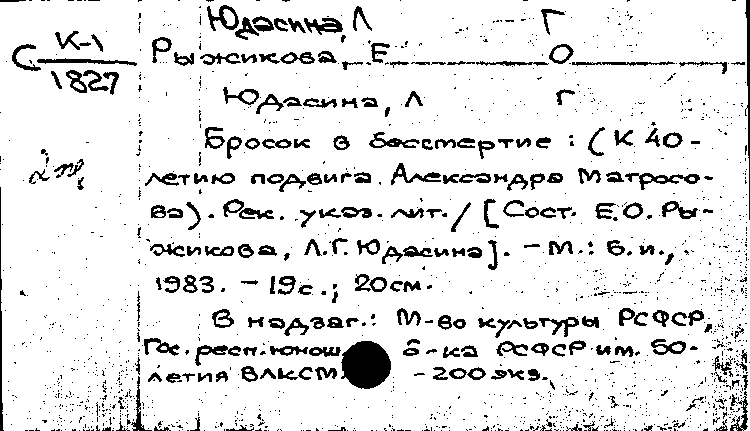 Юдасина, Л Г
С К-1
1827
Рыжикова, Е О
Юдасина, Л Г
2 пр,
Бросок в бессмертие : (К 40-
летию подвига Александра Матросо-
ва). Рек. указ. лит. / [Сост. Е.О. Ры-
жикова, Л.Г. Юдасина]. - М.: Б. и.,
1983. - 19с.; 20см.
В надзаг.: М-во культуры РСФСР,
Гос. респ. юнош. б-ка РСФСР им. 50-
летия ВЛКСМ. - 200 экз.